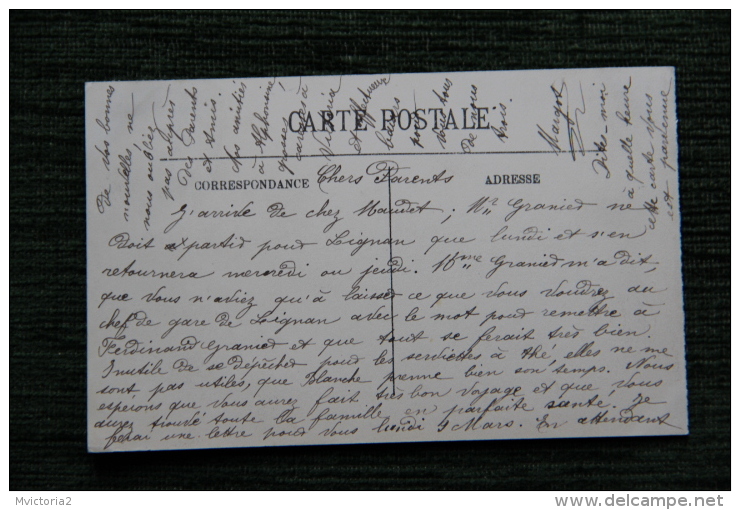 CARTE POSTALE
CORRESPONDANCE
ADRESSE
Chers Parents
J'arrive de chez Maudet; Mr Granied ne
doit partid poud Lignan que lundi et s'en
retournera mercredi ou jeudi. Mme Granied m'a dit,
que vous n'aviez qu'à laissed ce que vous voudrez au
chef de gare de Lignan avec le mot poud remettre à
Ferdinand Granied et que tout se ferait très bien.
Inutile de se dépêched poud les serviettes à thé, elles ne me
sont pas utiles, que Blanche prenne bien son temps. Nous
espérons que vous aurez fait très bon voyage et que vous
aurez trouvé toute la famille en parfaite santé, je
ferai une lettre poud vous lundi 9 Mars. En attendant
de vos bonnes
nouvelles ne
nous oubliez
pas auprès
des Parents
et Amis.
Nos amitiés
à Alphonsine,
grosses
caresses à
Victoria
et affectueux
baisers
pour
vous tous
de nous
trois.
Margot
Dites-moi
à quelle heure
cette carte vous
est parvenue
Mvictoria2
http://mvictoria2.delcampe.net